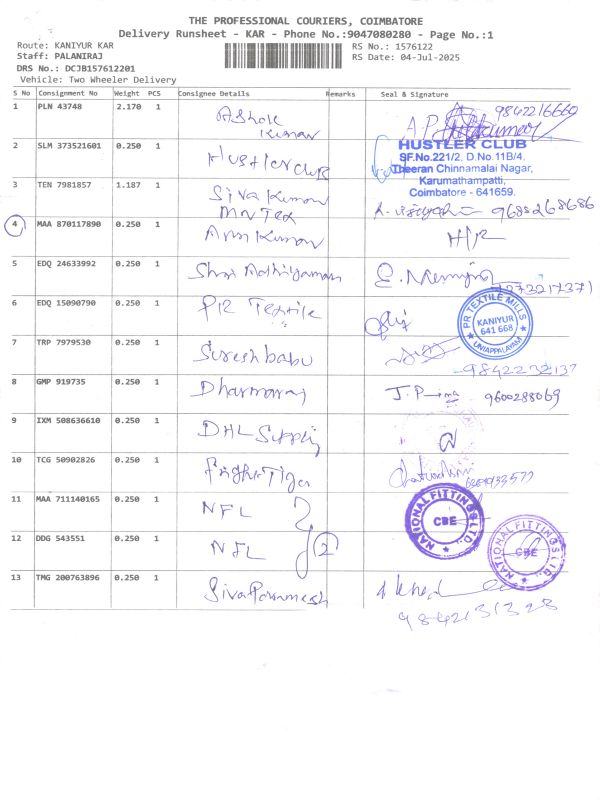 THE PROFESSIONAL COURIERS, COIMBATORE
Delivery Runsheet - KAR - Phone No.:9047080280 - Page No.:1
Route: KANIYUR KAR
RS No.: 1576122
Staff: PALANIRAJ
RS Date: 04-Jul-2025
DRS No.: DCJB157612201
Vehicle: Two Wheeler Delivery
S No Consignment No Weight PCS Consignee Details Remarks Seal & Signature
1 PLN 43748 2.170 1 Ashok Kumar 9842216660
2 SLM 373521601 0.250 1 Hustler club
HUSTLER CLUB
SF.No.221/2, D.No.11B/4,
Theeran Chinnamalai Nagar,
Karumathampatti,
Coimbatore - 641659.
3 TEN 7981857 1.187 1 Siva Kumar 9685268686
4 MAA 870117890 0.250 1 Arun Kumar
5 EDQ 24633992 0.250 1 Shri Adhiyaman
6 EDQ 15090790 0.250 1 PR Textile
PR TEXTILE MILLS
KANIYUR
641 668
UNJAPPALAYAM
7 TRP 7979530 0.250 1 Sureshbabu 9842232137
8 GMP 919735 0.250 1 Dharmaraj 9600288069
9 IXM 508636610 0.250 1 DHL Supply
10 TCG 50902826 0.250 1 Tiger
11 MAA 711140165 0.250 1 NFL
NATIONAL FITTINGS LTD
CBE
12 DDG 543551 0.250 1 NFL 2
NATIONAL FITTINGS LTD
CBE
13 TMG 200763896 0.250 1
9842131328